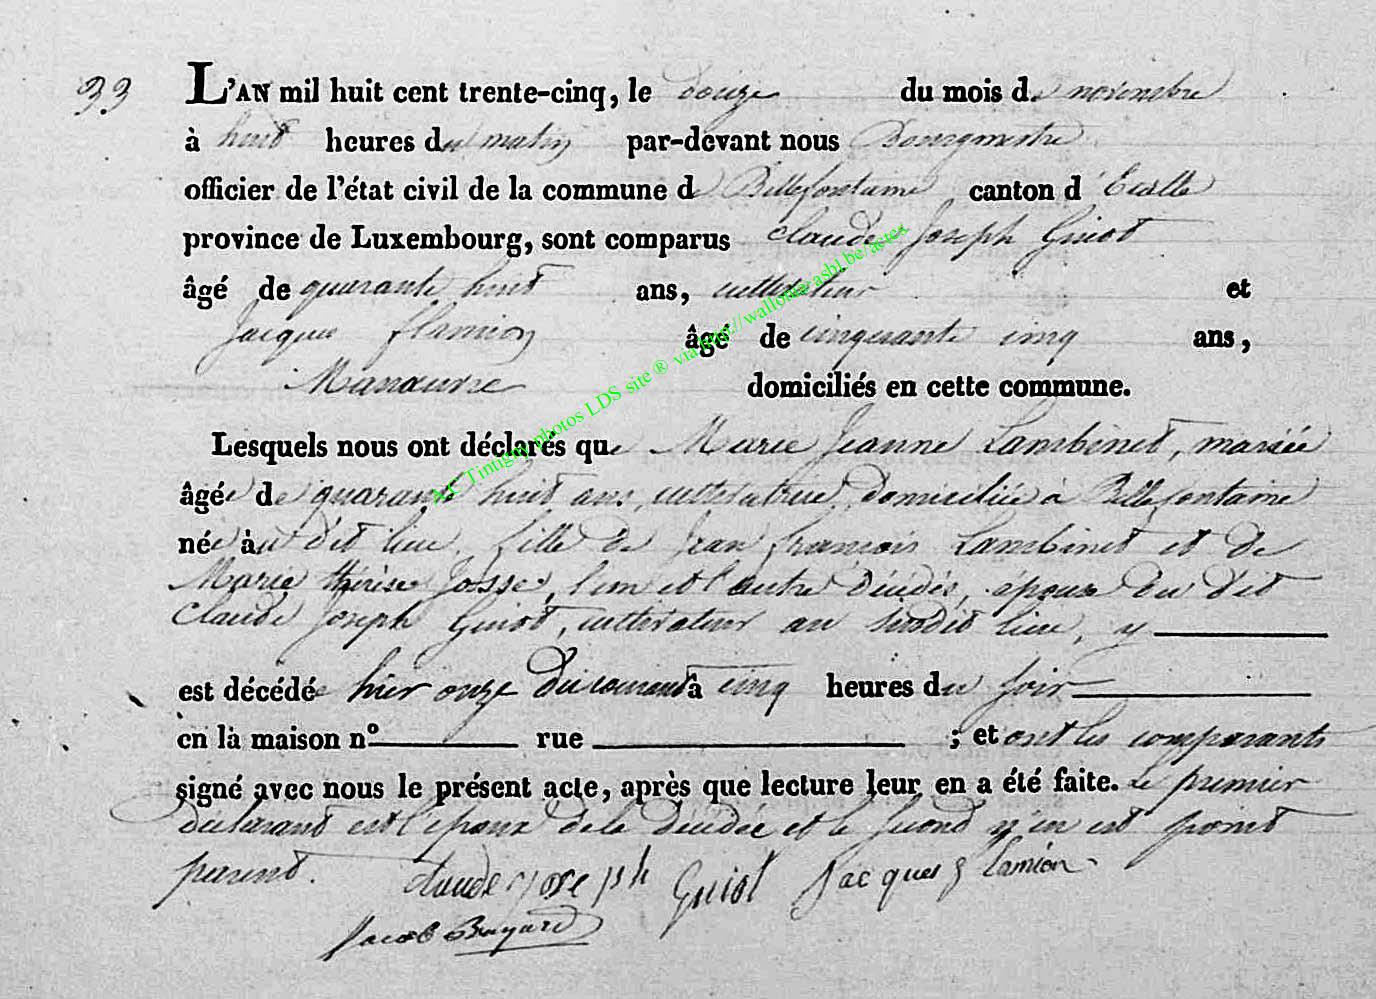 33
L'AN mil huit cent trente-cinq, le douze du mois de novembre
à huit heures du matin par-devant nous Bourgmestre
officier de l'état civil de la commune de Bellefontaine canton d'Etalle
province de Luxembourg, sont comparus Claude Joseph Guiot
âgé de quarante huit ans, cultivateur et
Jacques flamion âgé de cinquante cinq ans,
Manœuvre domiciliés en cette commune.
Lesquels nous ont déclarés que Marie Jeanne Lambinet, mariée
âgée de quarante huit ans, cultivatrice, domiciliée à Bellefontaine
née au dit lieu, fille de Jean françois Lambinet et de
Marie thérèse Josse, l'un et l'autre décédés, épouse du dit
Claude Joseph Guiot, cultivateur au susdit lieu, y
est décédée hier onze du courant à cinq heures du soir
en la maison nº rue ; et ont les comparants
signé avec nous le présent acte, après que lecture leur en a été faite. Le premier
déclarant est l'époux de la décédée et le second n'en est point
parent. Claude joseph Guiot Jacques flamion
Jacob Buyard
AC Tintigny photos LDS site ® via http://wallonia-asbl.be/actes